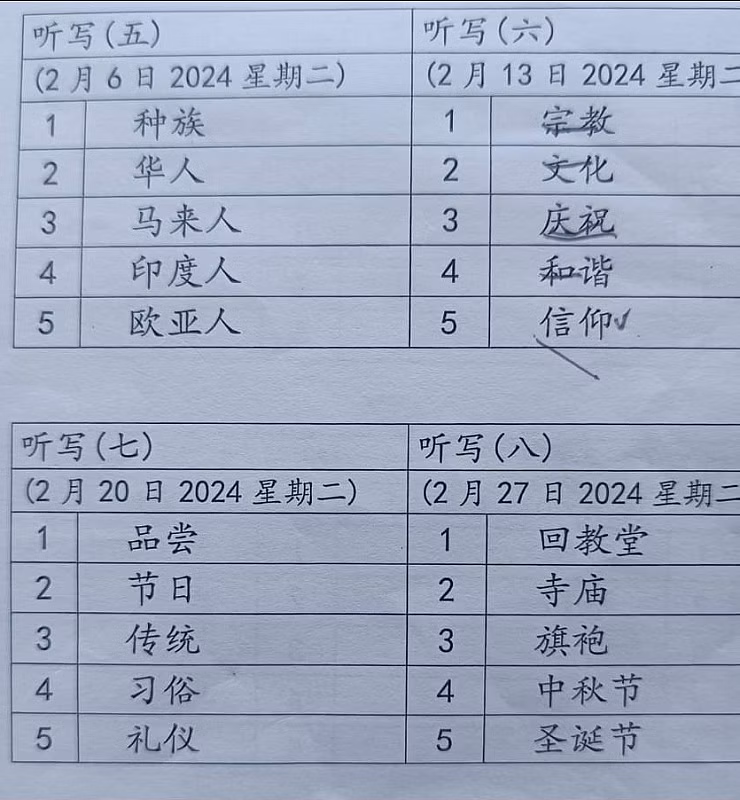 听写(五)
(2 月 6 日 2024 星期二)
1 种族
2 华人
3 马来人
4 印度人
5 欧亚人
听写(六)
(2 月 13 日 2024 星期二
1 宗教
2 文化
3 庆祝
4 和谐
5 信仰✓
听写(七)
(2 月 20 日 2024 星期二)
1 品尝
2 节日
3 传统
4 习俗
5 礼仪
听写(八)
(2 月 27 日 2024 星期二
1 回教堂
2 寺庙
3 旗袍
4 中秋节
5 圣诞节